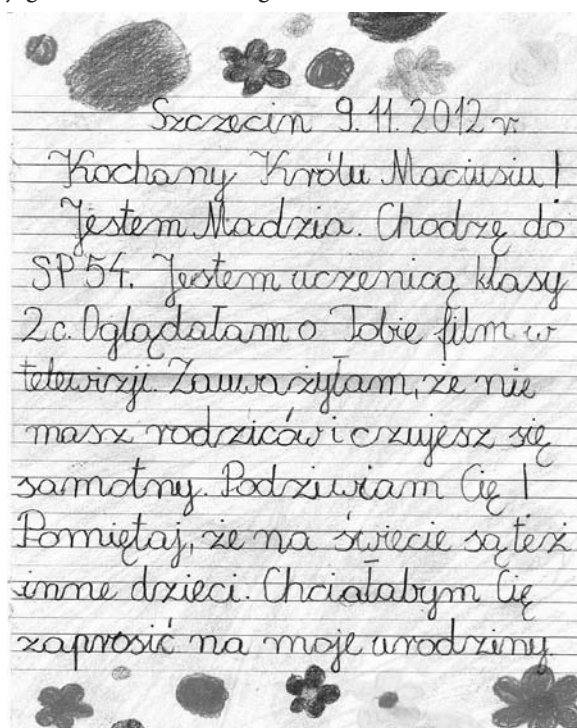 Szczecin 9.11.2012 r.
Kochany Królu Maciusiu!
Jestem Madzia. Chodzę do
SP 54. Jestem uczenicą klasy
2c. Oglądałam o Tobie film w
telewizji. Zauważyłam, że nie
masz rodziców i czujesz się
samotny. Podziwiam Cię!
Pomiętaj, że na świecie są też
inne dzieci. Chciałabym Cię
zaprosić na moje urodziny.